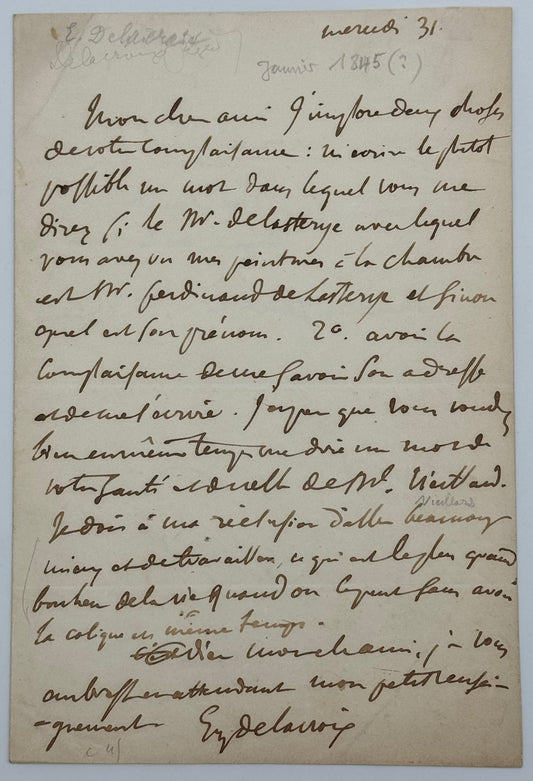 E. Delacroix
Delacroix
mercredi 31.
Janvier 1845 (?)
Mon cher ami J'implore deux choses
de votre complaisance : m'ecrire le plutot
possible un mot dans lequel vous me
direz si le Mr. de lasterye avec lequel
vous avez vu mes peintures à la chambre
est Mr. ferdinand de Lasterye et sinon
quel est son prénom. 2o. avoir la
complaisance de me savoir son adresse
et de me l'écrire. J'espere que vous voudrez
bien en même temps me dire un mot de
votre santé et de celle de Mr. Vieillard.
Vieillard
Je dois à ma réclusion d'aller beaucoup
mieux et de travailler, ce qui est le plus grand
bonheur de la vie quand on le peut sans avoir
la colique en même temps.
adieu mon cher ami, je vous
embrasse en attendant mon petit rensei-
-gnement Eug Delacroix